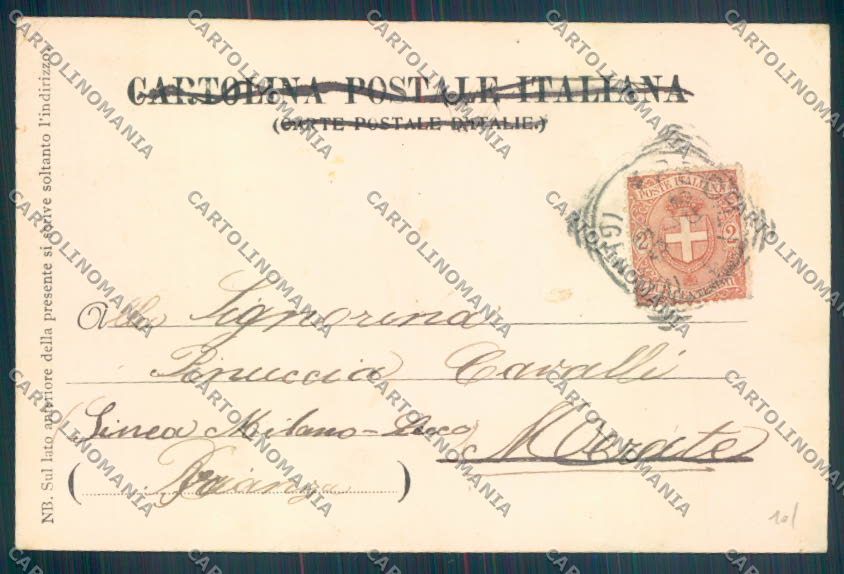 CARTOLINA POSTALE ITALIANA
(CARTE POSTALE D'ITALIE.)
NB. Sul lato anteriore della presente si scrive soltanto l'indirizzo.
POSTE ITALIANE
2 2
Alla Signorina
Pinuccia Cavalli
(Linea Milano-Lecco) Merate
(Brianza)
101
CARTOLINOMANIA